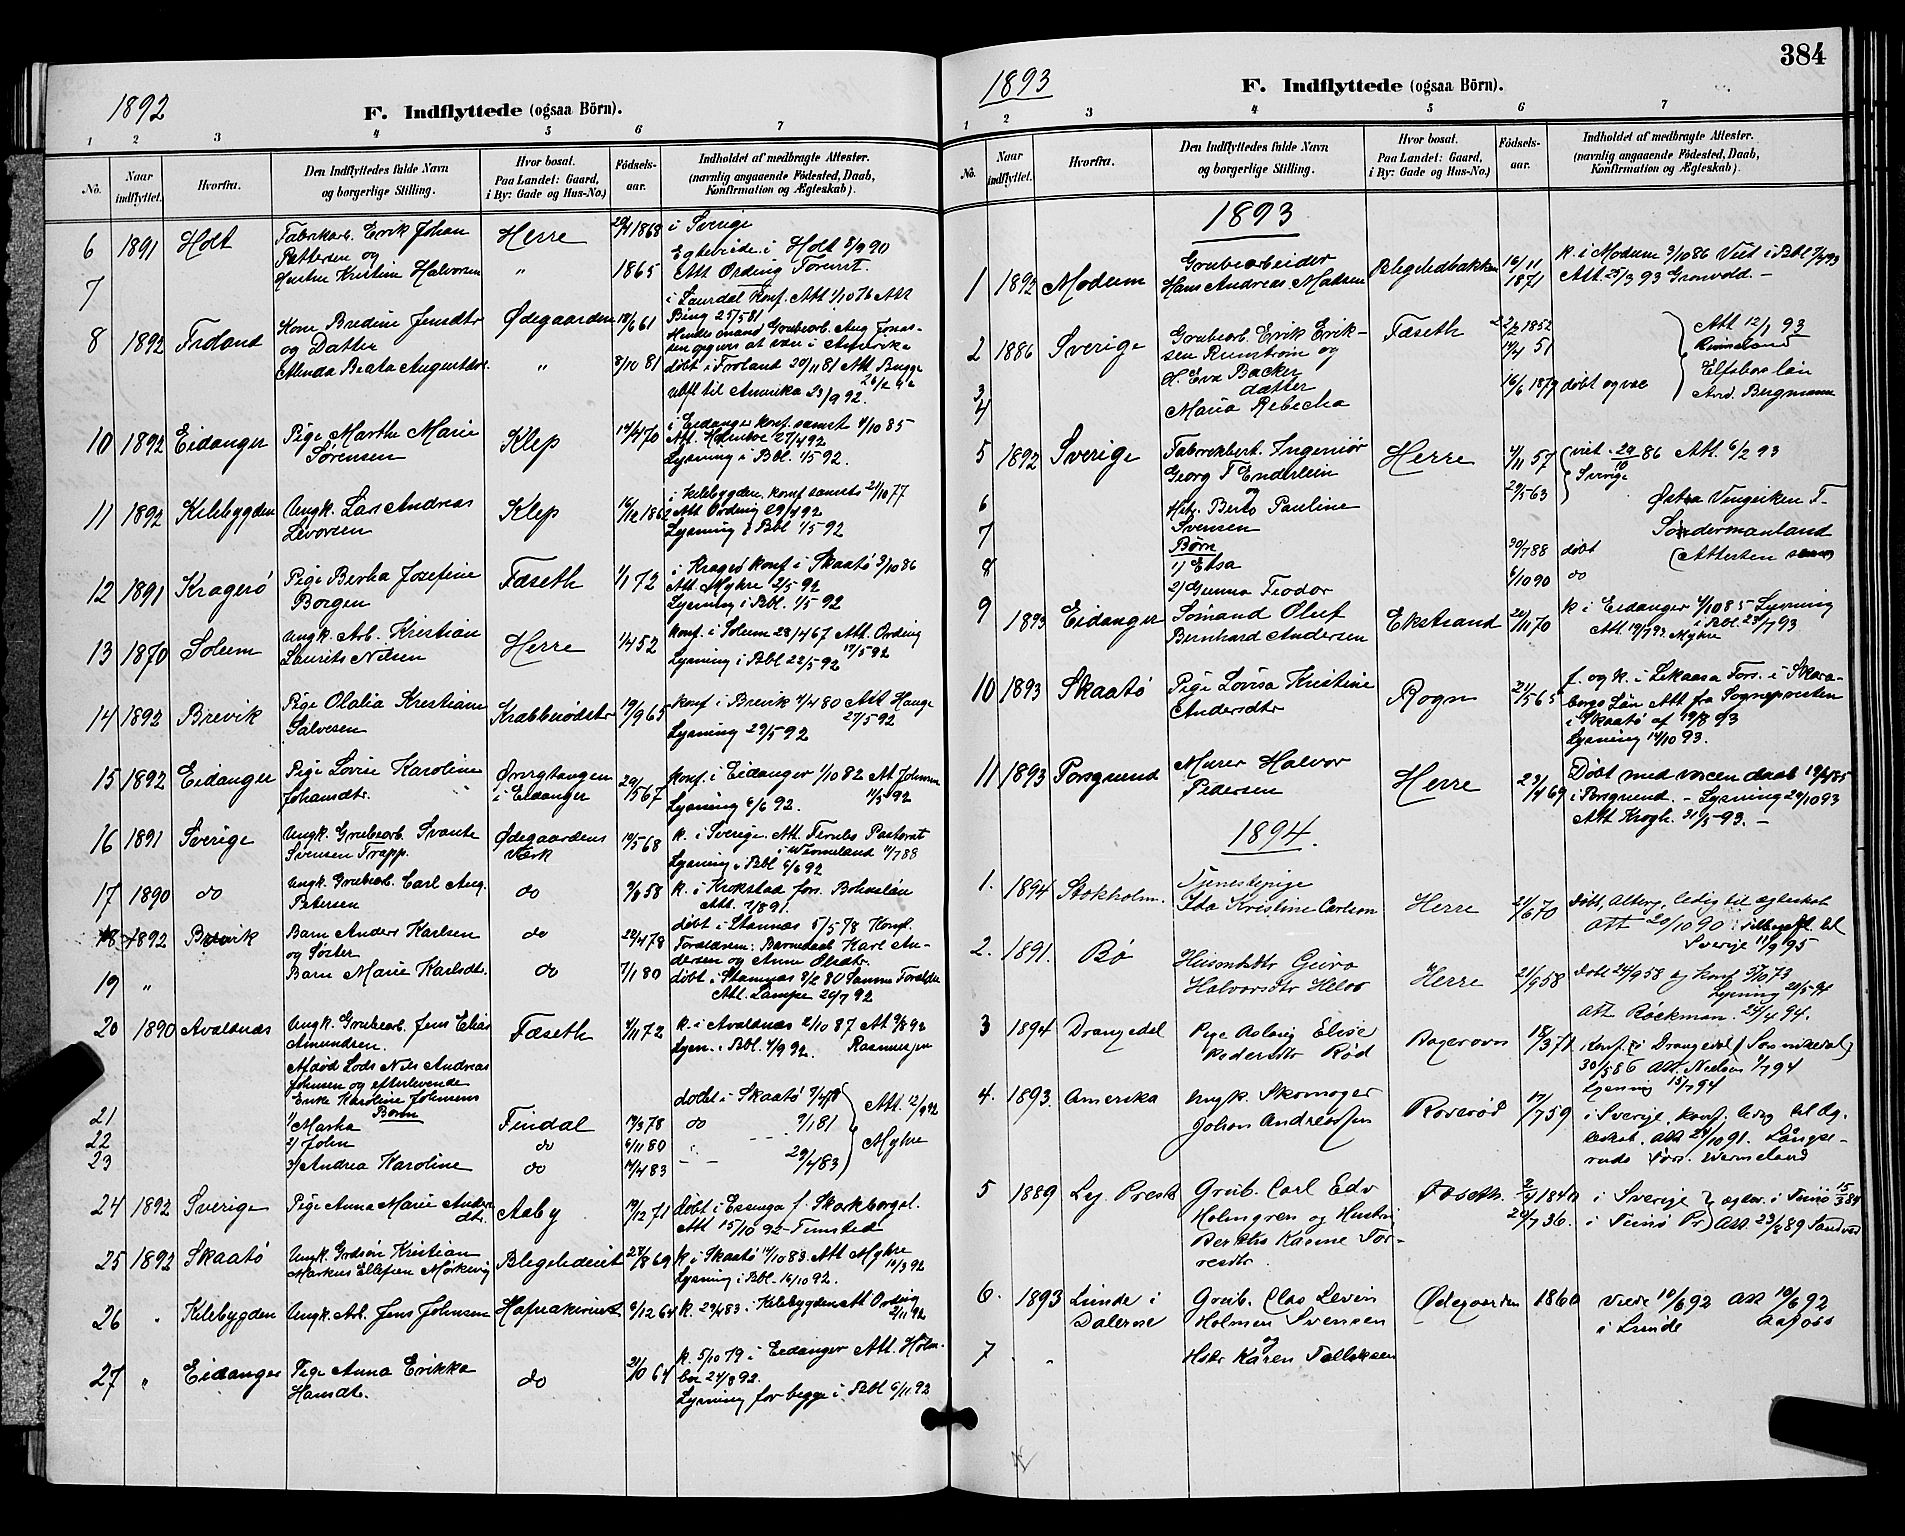 1892
F. Indflyttede (ogsaa Börn).
1 2 3 4 5 6 7
No. Naar indflyttet. Hvorfra. Den Indflyttedes fulde Navn og borgerlige Stilling. Hvor bosat. Paa Landet: Gaard, i By: Gade og Hus-No.) Födsels-aar. Indholdet af medbragte Attester. (navnlig angaaende Födested, Daab, Konfirmation og Ægteskab).
6 1891 Holt Fabrikarb. Erik Johan Herre 1868 i Sverige
Pettersen og Egtevide. i Holt 8/9 90
7 Hustru Kristine Halvorsen " 1865 Att Ording
8 1892 Froland Kone Bredine Jensdtr Ødegaarden 18/6 61 i Laurdal Konf. Att 1/10 76 Att
Bing 25/5 81
og Datter i Amerika
Beata " 8/10 81 døbt i Froland 20/11 81 Att. Bugge
til Amerika 23/9 92.
10 1892 Eidanger Pige Marthe Marie Klep 14/4 70 i Eidanger konf. samst 4/10 85
Sørensen Att. Holmboe 27/4 92
Lysning i Bbl. 1/5 92.
11 1892 Kilebygden Ungk. Lars Andreas Klep 1862 i Kilebygden. konf samsts 21/10 77
Levorsen Att Ording 29/4 92
Lysning i Bbl 1/5 92
12 1891 Kragerö Pige Bertha Josefine Fæseth 1/1 72 i Kragerö konf i Skaatö 3/10 86
Borgen Att. Myhre 2/5 92
Lysning i Bbl. 1/5 92
13 1870 Solum Ungk. Arb. Kristian Herre 1/4 52 konf. i Solum 28/4 67 Att. Ording
Laurits Nilsen 17/5 92
Lysning i Bbl 22/5 92
14 1892 Brevik Pige Olalia Kristiane Krabberødstr 19/9 65 konf i Brevik 4/4 80 Att Hauge
Salvesen 27/5 92
Lysning 29/5 92
15 1892 Eidanger Pige Lovise Karoline Ørvigtangen 29/5 67 konf. i Eidanger 1/10 82 At Johnsen
Johansdtr. i Eidanger 11/5 92
Lysning 6/6 92.
16 1891 Sverige Ungk. Grubearb. Svante Ødegaardens 12/5 68 k. i Sverige. Att. Fernebo Pastorat
Svensen Trapp. Værk i Wermeland 1/7 88
Lysning i Bbl 6/6 92
17 1890 do Ungk. Grubearb. Carl Aug. do 9/6 58 k. i Krokstad fors. Bohuslän
Petersen Att. 2/8 91.
18 1892 Brevik Barn Anders Karlsen do 22/4 78 døbt i Stamnæs 5/5 78
og Søster Forældrene: Karl An-
dersen og Anne Olsdtr.
19 " Barn Marie Karlsdtr. do 7/1 80 døbt i Stamnæs 8/2 80 Samme Forældre
Att. Lampe 20/7 92
20 1890 Avaldnæs Ungk. Grubearb. Jens Elias Fæseth 4/11 72 k. i Avaldnæs 2/10 87 At 9/8 92
Amundsen. Lysn. i Bbl. 4/9 92. Rasmussen
Afdød Lods Nils Andreas
Johnsen og efterlevende
Enke Karoline Johnsens
Børn
21 1/ Marka Findal 14/3 78 døbt i Skaatö Att. 12/9 92
22 2/ John do 6/11 80 do 2/1 81 Myhre
23 3/ Andrea Karoline do 14/4 83 29/4 83
24 1892 Sverige Pige Anna Marie Anders- Aaby 19/12 71 døbt i Essenga f. Skarborgsl.
dtr. Att 15/10 92 Timsted
25 1892 Skaatö Ungk. Kristian Blegeliderne 27/8 69 k. i Skaatö 14/10 83. Att Myhre
Markus Ellefsen Mörkevig 10/3 92
Lysning i Bbl. 16/10 92.
26 " Kilebygden Ungk. Arb. Jens Johnsen 6/12 68 k. 29/4 83 i Kilebygden Att Ording
2/11 92
27 " Eidanger Pige Anna Erikka do 21/10 64 k. 5/10 79 i Eidanger Att. Holm-
Hansdtr. boe 24/8 92.
Lysning for begge i Bbl 6/11 92
384
1893
F. Indflyttede (ogsaa Börn).
1 2 3 4 5 6 7
No. Naar indflyttet. Hvorfra. Den Indflyttedes fulde Navn og borgerlige Stilling. Hvor bosat. Paa Landet: Gaard, i By: Gade og Hus-No.) Födsels-aar. Indholdet af medbragte Attester. (navnlig angaaende Födested, Daab, Konfirmation og Ægteskab).
1893
1 1892 Modum Grubearbeider Blegelidbakken 16/11 k. i Modum 3/10 86 Viet i Bbl 7/4 93
Hans Andreas Madsen 1871 Att. 25/3 93 Gronvold. –
2 1886 Sverige Grubearb. Erik Erik- Fæseth 22/2 1852 Att 12/1 93
sen Runström og 14/4 51
3 H. Eva Backer Elfsborslän
datter 16/6 1879 døbt og vac
4 Maria Rebecka And. Bergmann
5 1892 Sverige Fabrikbest. Ingeniör Herre 4/11 57 viet 29/10 86 Att. 6/2 93
Georg T Enderlein Sverige
6 og 29/5 63 Østra Vingåker F-
Hst. Berta Pauline
Svensen Södermanland
Børn
7 1) Elsa 30/7 88 döbt (Attesten samme)
8 2) Gunnar Teodor 6/10 90 do
9 1893 Eidanger Sømand Oluf Ekstrand 20/11 70 k i Eidanger 4/10 85 Lysning
Bernhard Andersen i Bbl. 23/7 93
Att. 19/7 93 Myhre
10 1893 Skaatö Pige Lovisa Kristine Rogn 21/5 65 f. og k. i Likaasa Fors. i Skara-
Andersdtr borgs Län Att fra Sognepresten
i Skaatö af 19/8 93
Lysning 14/10 93.
11 1893 Porsgrund Murer Halvor Herre 23/4 69 Døbt med voxen daab 19/4 85
Pedersen i Porsgrund. – Lysning 29/10 93
Att Krogh. 31/5 93. –
1894.
1. 1894 Stokholm. Tjenestepige Herre 21/6 70 Døbt, Altberg., ledig til ægteskab
Ida Kristine Carlson Att 20/10 90 : tilbagefl. til
Sverije 11/9 95
2. 1891. Bø Huusmdtr Guro Herre 21/9 58 döbt 26/9 58 og konf. 5/10 73
Halvorsdtr Helos Lysning 20/5 94
Att Röckman. 24/4 94.
3 1894 Drangedal Pige Aslaug Elise 18/3 71 konf. i Drangedal
Pedersdtr Rød 30/5 86 Att. Nielsen 1/7 94
Lysning 15/7 94
4. 1893. Amerika Ungk. Skomager Roserød 17/7 59 i Sverije, konf, ledig til Æg-
Johan Andreassen teskab. Att 24/10 91. Långse-
ruds Förs. Wermeland
5 1889 Grub. Carl Edv Fæseth. 1840 i Sverije ægtev. i Tinnö 15/3 84
Holmgren og Hustru 20/7 36. i Tinnö Pr Att. 23/8 89
Karine Tor-
resdtr.
6. 1893 Lunde i Grub. Clas Levin Ødegaarden 1860 Viede 10/6 92 Att 10/6 92
Dalerne Holmen Svensen i Lunde Aarfoss
og
7 . " Hstr Karen Tollefsen